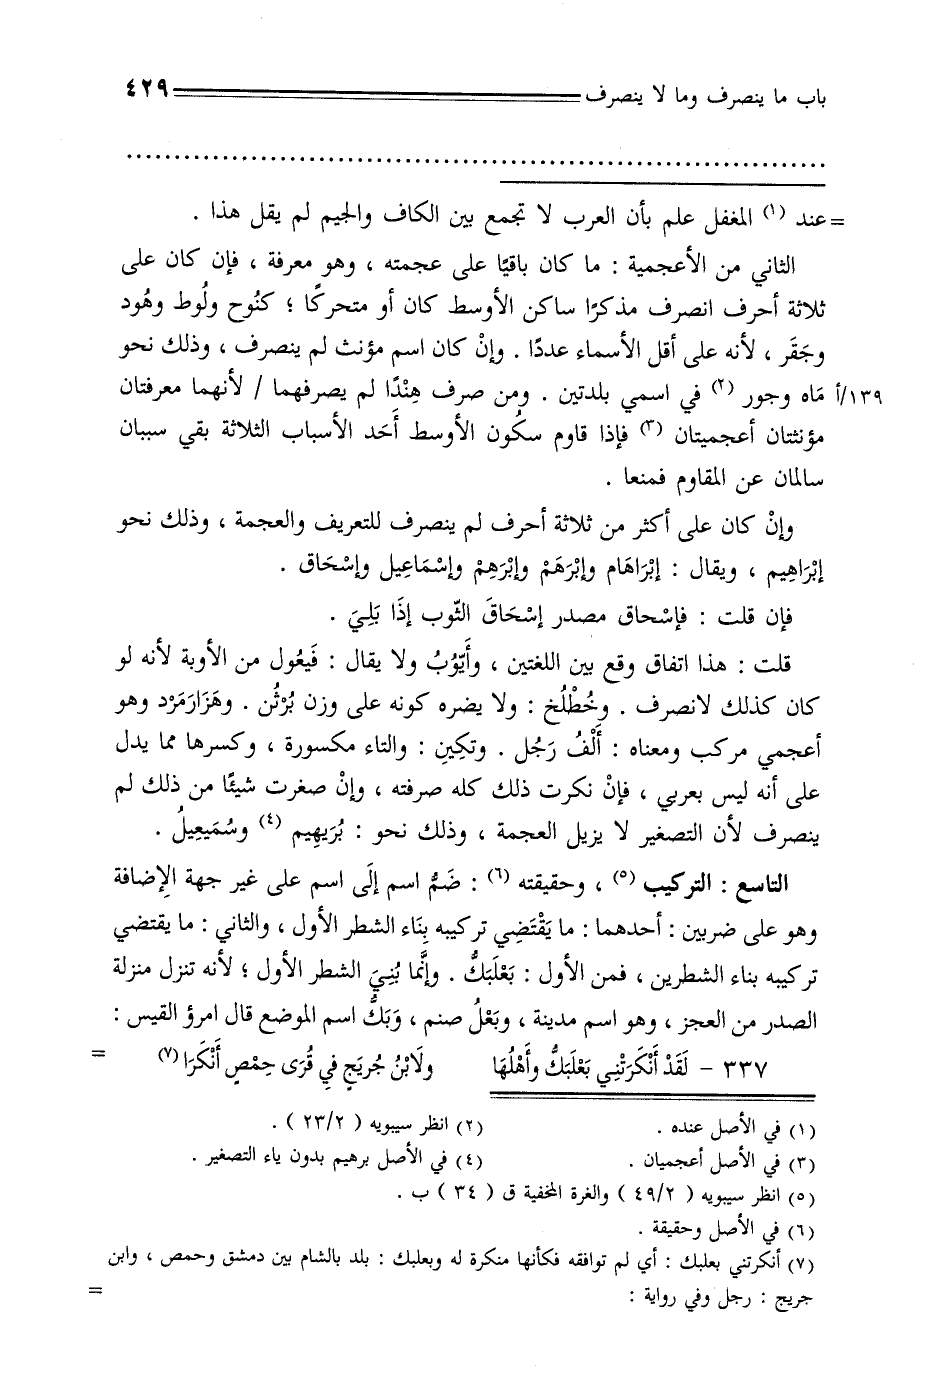 باب ما ينصرف وما لا ينصرف ٤٢٩
= عند (١) المغفل علم بأن العرب لا تجمع بين الكاف والجيم لم يقل هذا .
الثاني من الأعجمية : ما كان باقيًا على عجمته ، وهو معرفة ، فإن كان على
ثلاثة أحرف انصرف مذكرًا ساكن الأوسط كان أو متحركًا ؛ كنُوح ولُوط وهُود
وجَقَر ، لأنه على أقل الأسماء عددًا . وإنْ كان اسم مؤنث لم ينصرف ، وذلك نحو
١٣٩/أ مَاه وجور (٢) في اسمي بلدتين . ومن صرف هِنْدًا لم يصرفهما / لأنهما معرفتان
مؤنثتان أعجميتان (٣) فإذا قاوم سكُون الأوسط أَحَد الأسباب الثلاثة بقي سببان
سالمان عن المقاوم فمنعا .
وإنْ كان على أكثر من ثلاثة أحرف لم ينصرف للتعريف والعجمة ، وذلك نحو
إبْرَاهِيم ، ويقال : إبْرَاهَام وإبْرَهَمْ وإبْرَهِمْ وإسْمَاعِيل وإسْحَاق .
فإن قلت : فإسْحاق مصدر إسْحَاقَ الثّوب إذَا بَلِيَ .
قلت : هذا اتفاق وقع بين اللغتين ، وأَيّوُبُ ولا يقال : فَيعُول من الأوبة لأنه لو
كان كذلك لانصرف . وخُطْلُخ : ولا يضره كونه على وزن بُرْثُن . وهَزَارَمَرْد وهو
أعجمي مركب ومعناه : أَلْفُ رَجُل . وتكِينِ : والتاء مكسورة ، وكسرها مما يدل
على أنه ليس بعربي ، فإنْ نكرت ذلك كله صرفته ، وإنْ صغرت شيئًا من ذلك لم
ينصرف لأن التصغير لا يزيل العجمة ، وذلك نحو : بُرَيهِيم (٤) وسُمَيعِيلُ .
التاسع : التركيب (٥) ، وحقيقته (٦) : ضَمُّ اسم إلَى اسم على غير جهة الإضافة
وهو على ضربين : أحدهما : ما يَقْتَضِي تركيبه بِنَاء الشطر الأول ، والثاني : ما يقتضي
تركيبه بناء الشطرين ، فمن الأول : بَعْلَبَكُّ . وإنَّما بُنِيَ الشطر الأول ؛ لأنه تنزل منزلة
الصدر من العجز ، وهو اسم مدينة ، وبَعْلُ صنم ، وَبَكُّ اسم الموضع قال امرؤ القيس :
٣٣٧ - لَقَدْ أَنْكَرَتْنِي بَعْلَبَكُّ وأَهْلُهَا ولَابْنُ جُرَيجٍ فِي قُرَى حِمْصٍ أَنْكَرَا (٧) =
(١) في الأصل عنده . (٢) انظر سيبويه ( ٢٣/٢ ) .
(٣) في الأصل أعجميان . (٤) في الأصل برهيم بدون ياء التصغير .
(٥) انظر سيبويه ( ٤٩/٢ ) والغرة المخفية ق ( ٣٤ ) ب .
(٦) في الأصل وحقيقة .
(٧) أنكرتني بعلبك : أي لم توافقه فكأنها منكرة له وبعلبك : بلد بالشام بين دمشق وحمص ، وابن
جريج : رجل وفي رواية : =